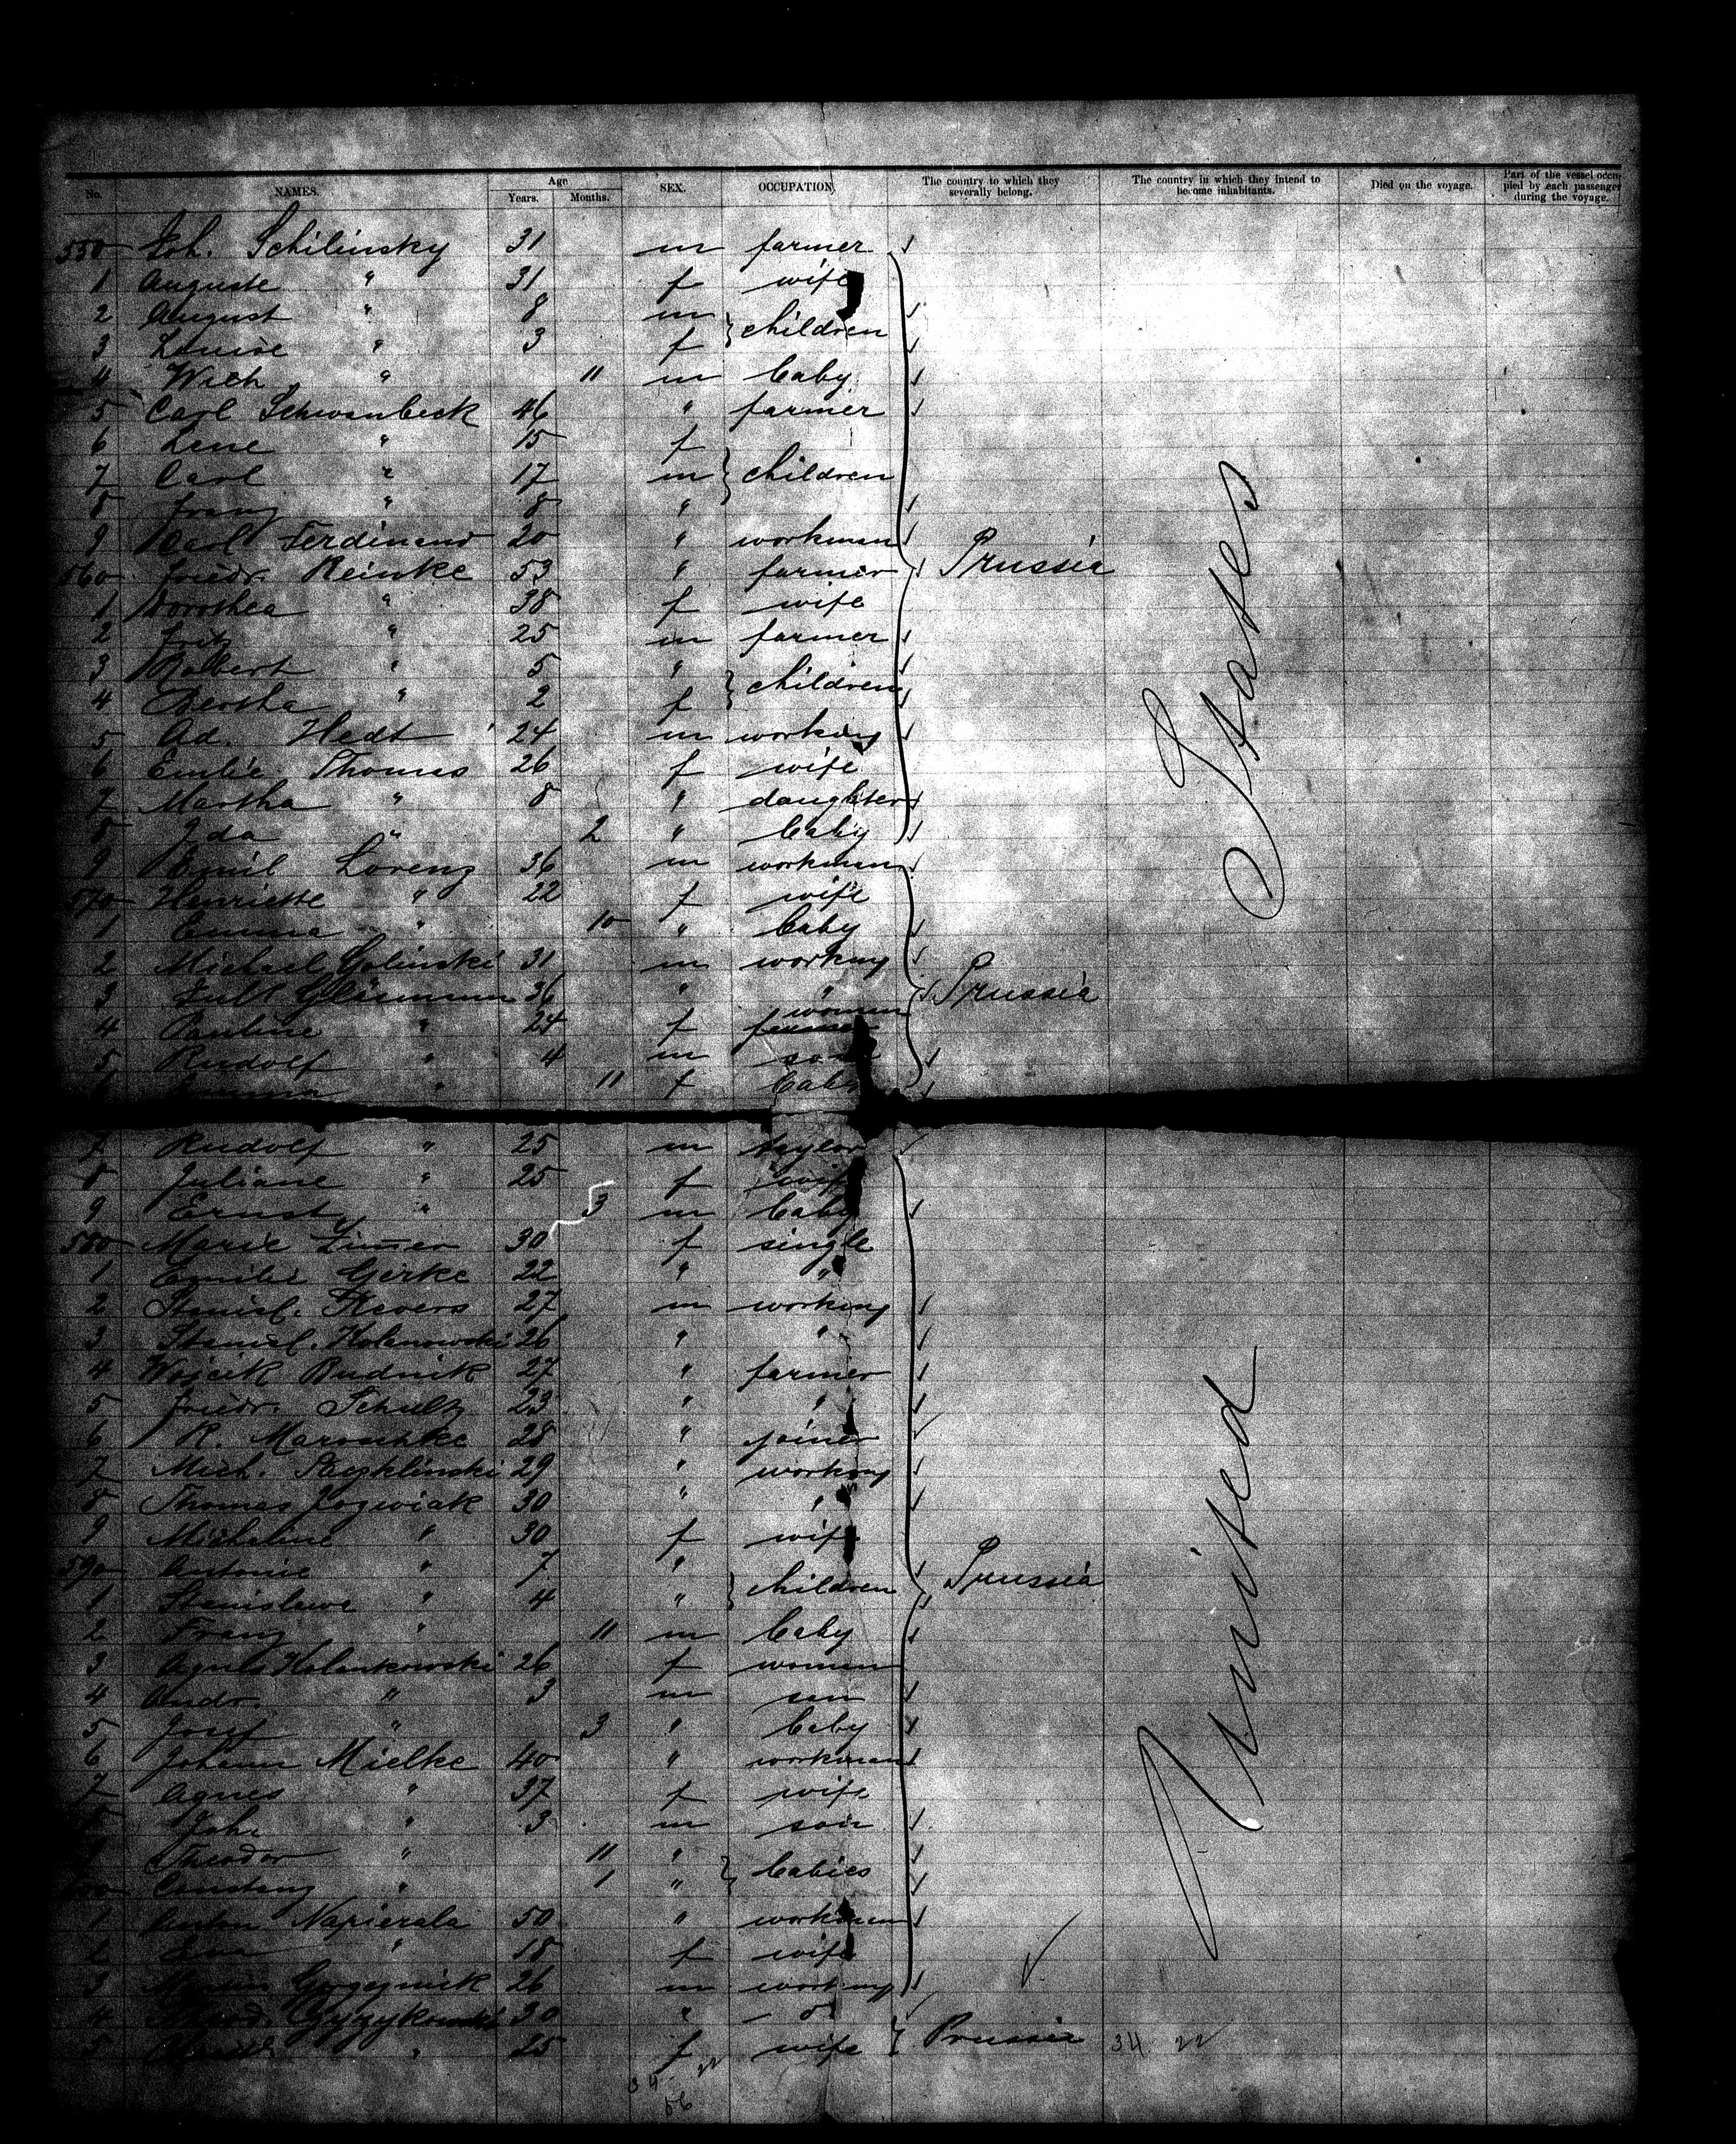 No. NAMES. Age Years. Months. SEX. OCCUPATION, The country to which they severally belong. The country in which they intend to become inhabitants. Died on the voyage. Part of the vessel occupied by each passenger during the voyage.
550 Joh. Schilinsky 31 m farmer
1 Auguste " 31 f wife
2 August " 8 m children
3 Louise " 3 f
4 Wilh. " 11 m baby
5 Carl Schwanbeck 46 " farmer
6 Lene " 15 f
7 Carl " 17 m children
8 Franz " 8 "
9 Carl Ferdinand 20 " workman
560 Friedr. Reinke 53 " farmer Prussia
1 Dorothea " 38 f wife
2 Fritz " 25 m farmer
3 Robert " 5 " children
4 Bertha " 2 f
5 Ad. Hedt 24 m working
6 Emilie Thomas 26 f wife
7 Martha " 8 " daughter
8 Ida " 2 " baby
9 Emil Lorenz 36 m workman
570 Henriette " 22 f wife
1 Emma " 10 " baby
2 Michael Golinski 31 m working
3 Jull 36 " " Prussia
4 Pauline " 24 f women
5 Rudolf " 4 m son
" 11 f baby
7 Rudolf " 25 m taylor
8 Juliane " 25 f wife
9 Ernst " 3 m baby
580 Marie Zimer 30 f single
1 Emilie Gerke 22 " "
2 Stanisl. 27 m working
3 Stanisl. Kolanowski 26 " "
4 Wojcik Budnik 27 " farmer
5 Friedr. Schultz 23 " "
6 R. Maroschke 28 " joiner
7 Mich. 29 " working
8 Thomas Jozwiak 30 " "
9 Micheline " 30 f wife
590 Antonie " 7 " children Prussia
1 Stanislawa " 4 "
2 Franz " 11 m baby
3 Agnes 26 f women
4 Andr. " 3 m son
5 Josef " 3 " baby
6 Johann Mielke 40 " workman
7 Agnes " 37 f wife
8 Joh. " 3 m son
9 Theodor " 11 " babies
600 " 1 "
1 Anton Napierala 50 " workman
2 " 18 f wife
3 26 m working
4 30 "
5 " 25 f wife Prussia 34 22
34 22
56
United States